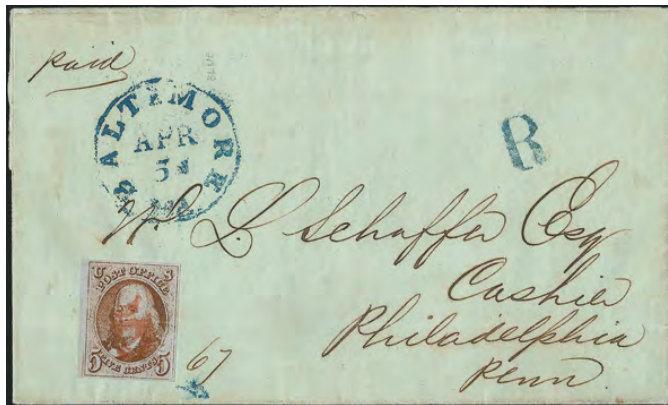 paid
BALTIMORE
APR
5
Md.
R
W. L. Schaffer Esq
Cashier
Philadelphia
Penn.
U S
POST OFFICE
FIVE CENTS
5 5
67